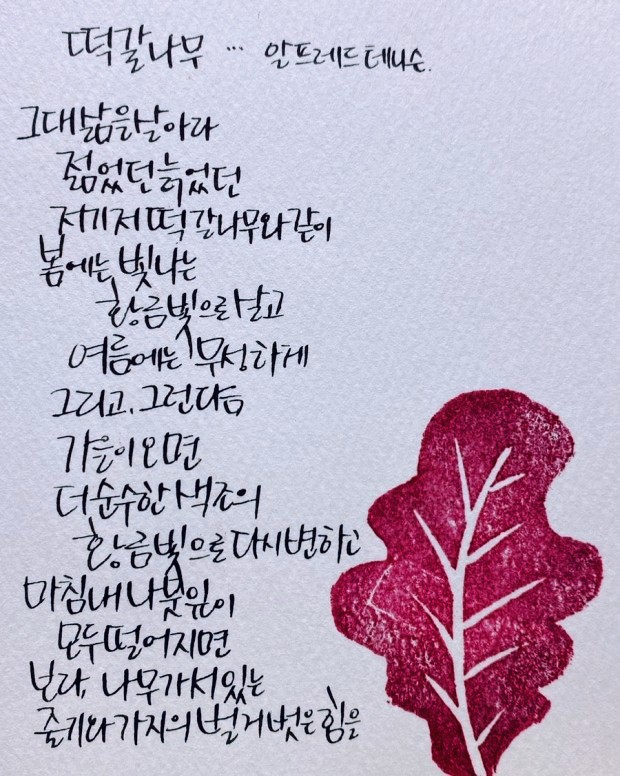 떡갈나무 … 알프레드 테니슨.
그대 삶을 살아라
젊었던 늙었던
저기 저 떡갈나무와 같이
봄에는 빛나는
황금빛으로 살고
여름에는 무성하게
그리고, 그런 다음
가을이 오면
더 순수한 색조의
황금빛으로 다시 변하고
마침내 나뭇잎이
모두 떨어지면
보라, 나무가 서 있는
줄기와 가지의 벌거벗은 힘을